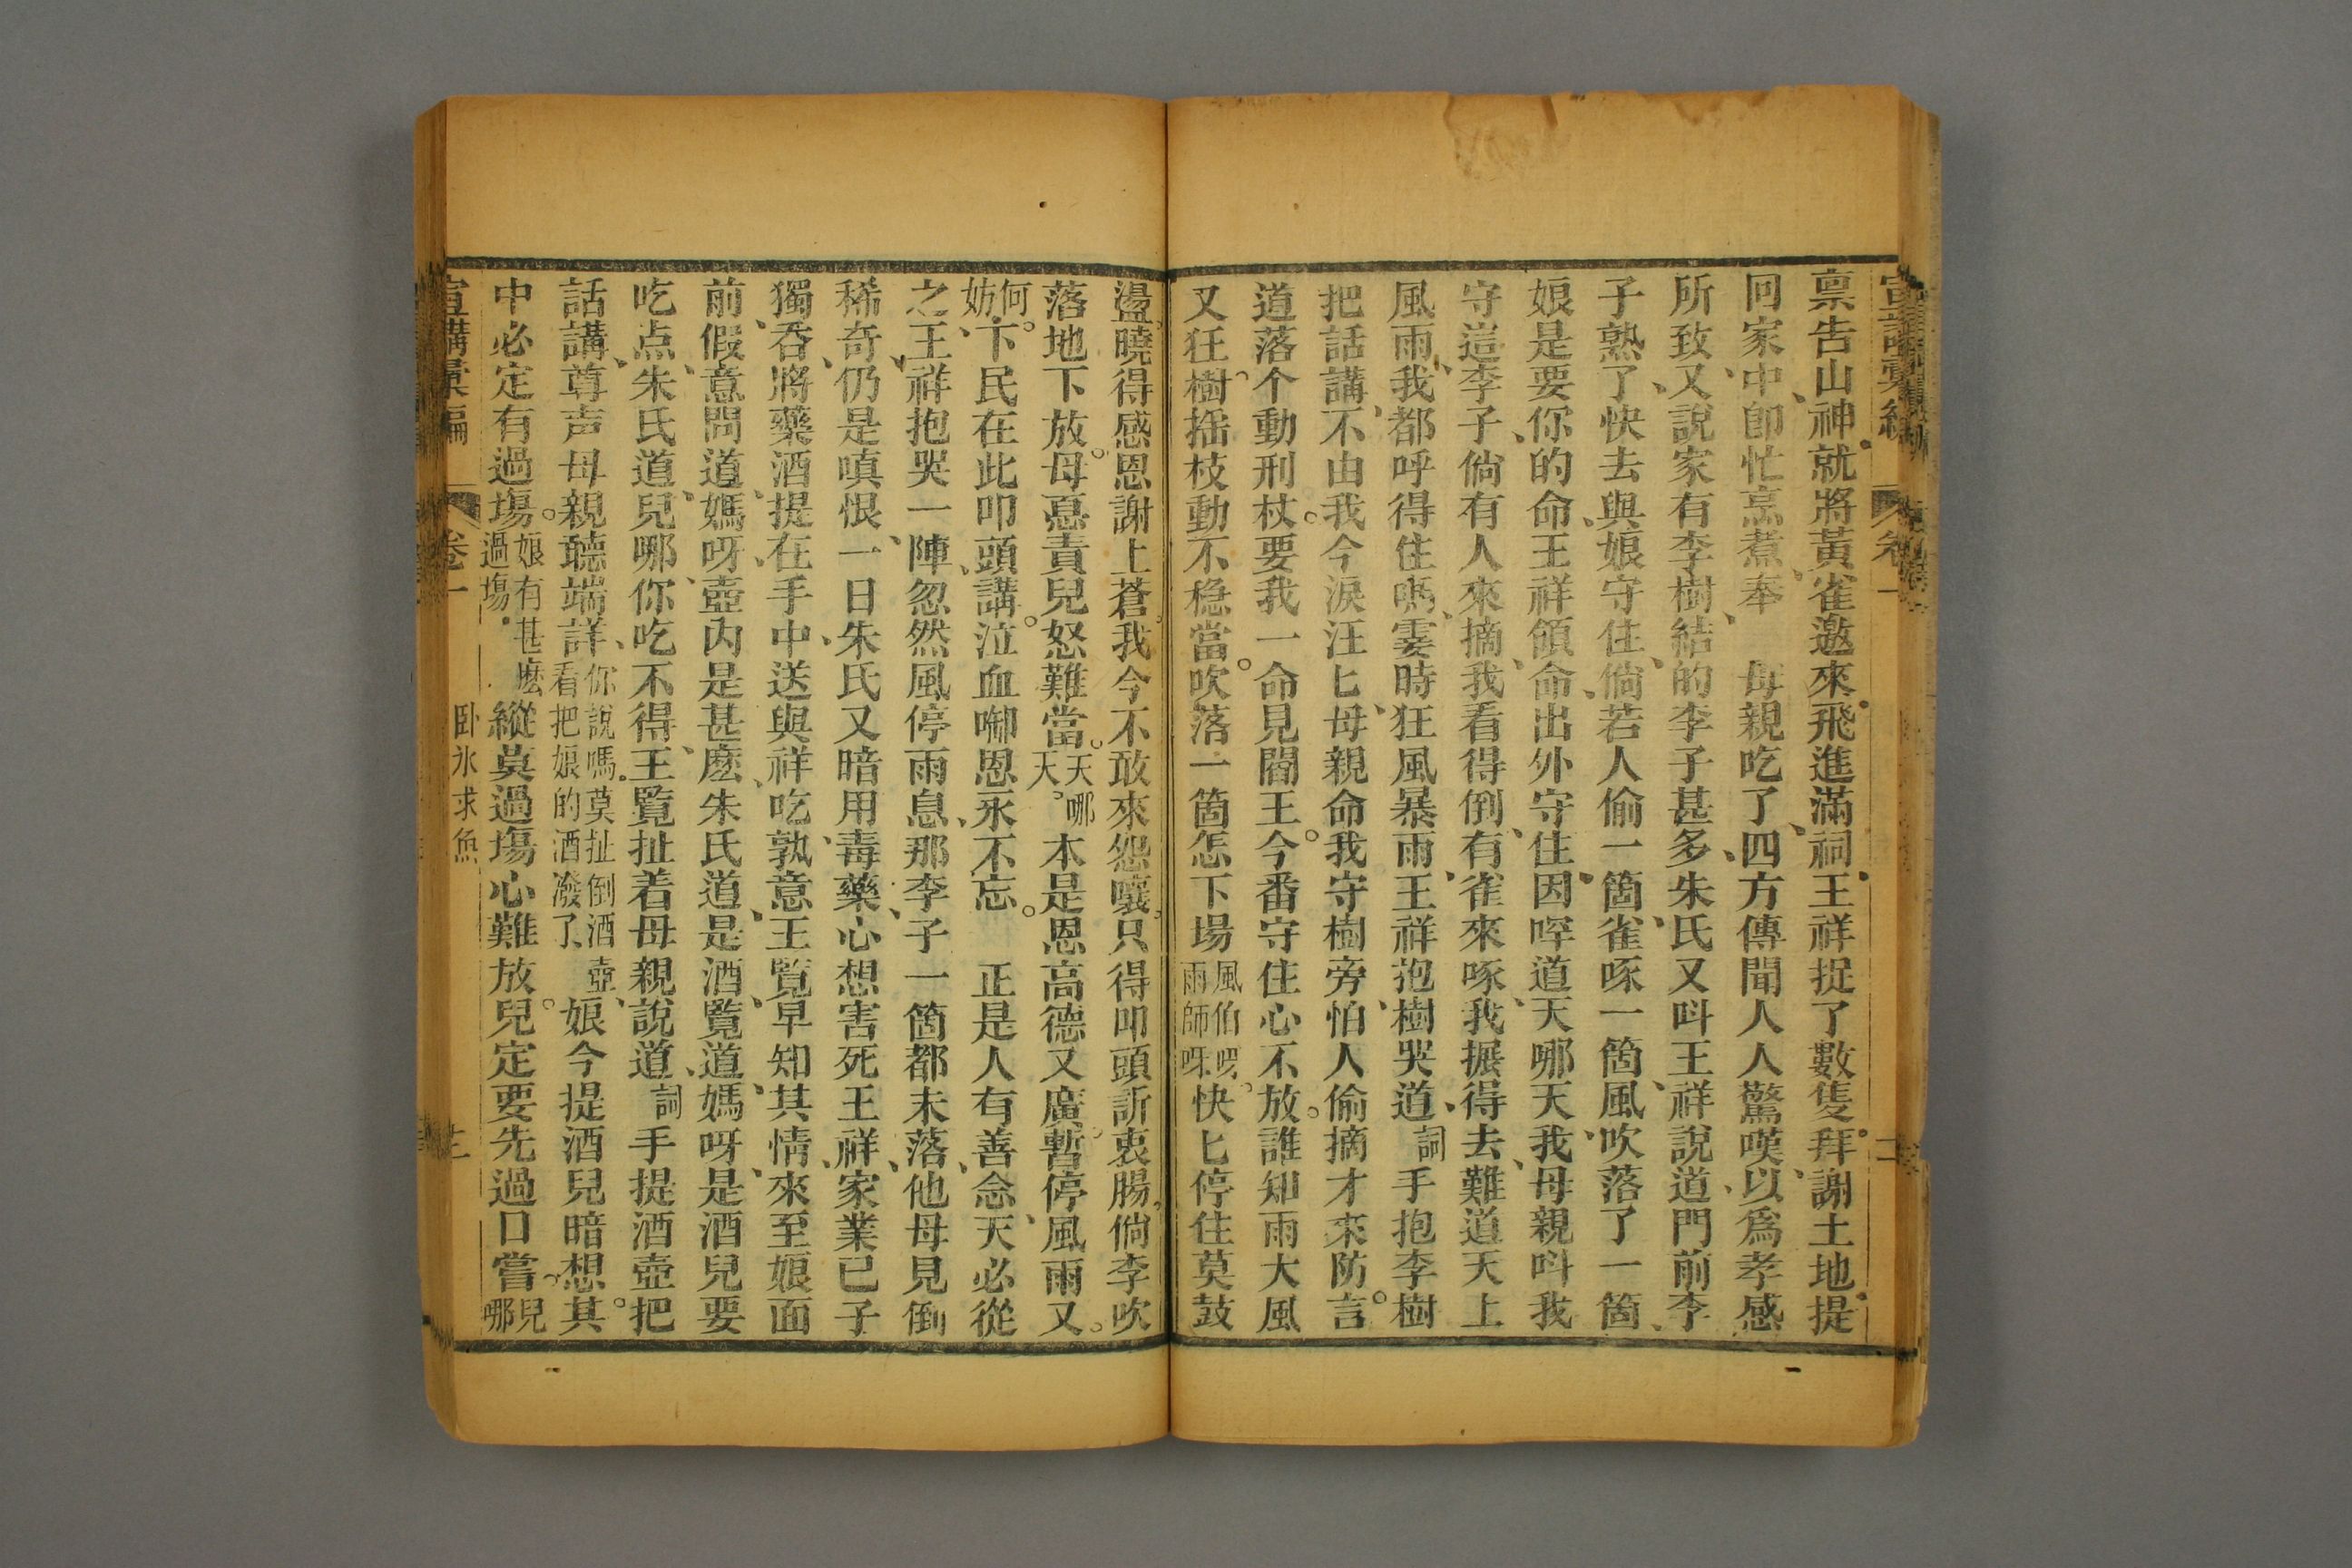 禀告山神就將黃雀邀來飛進滿祠王祥捉了數隻拜謝土地提
回家中即忙烹煮奉 母親吃了四方傳聞人人驚嘆以爲孝感
所致又說家有李樹結的李子甚多朱氏又呌王祥說道門前李
子熟了快去與娘守住倘若人偷一箇雀啄一箇風吹落了一箇
娘是要你的命王祥領命出外守住因哭道天哪天我母親呌我
守這李子倘有人來摘我看得倒有雀來啄我搌得去難道天上
風雨我都呼得住嗎霎時狂風暴雨王祥抱樹哭道詞手抱李樹
把話講不由我今淚汪匕母親命我守樹旁怕人偷摘才來防言
道落个動刑杖要我一命見閻王今番守住心不放誰知雨大風
又狂樹摇枝動不稳當吹落一箇怎下場風伯呀雨師呀快匕停住莫鼓
盪曉得感恩謝上蒼我今不敢來怨嚷只得叩頭訴衷腸倘李吹
落地下放母惪責兒怒難當天哪天本是恩高德又廣暫停風雨又
何妨下民在此叩頭講泣血啣恩永不忘 正是人有善念天必從
之王祥抱哭一陣忽然風停雨息那李子一箇都未落他母見倒
稀奇仍是嗔恨一日朱氏又暗用毒藥心想害死王祥家業已子
獨吞將藥酒提在手中送與祥吃孰意王覽早知其情來至娘面
前假意問道媽呀壺内是甚麽朱氏道是酒覽道媽呀是酒兒要
吃点朱氏道兒哪你吃不得王覽扯着母親說道詞手提酒壺把
話講尊声母親聽端詳你說嗎莫扯倒酒壺看把娘的酒潑了娘今提酒兒暗想其
中必定有過塲娘有甚麽過塲縱莫過塲心難放兒定要先過口嘗兒哪
宣講彙編 卷一 卧氷求魚